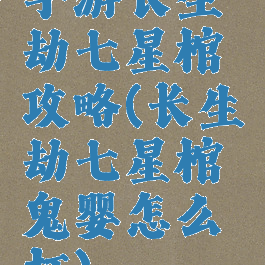 手游长生
劫七星棺
攻略(长生
劫七星棺
鬼婴怎么
打)